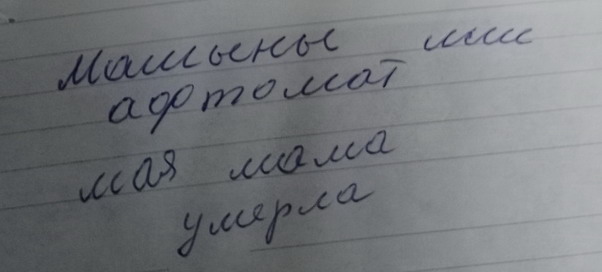 Машыны или
афтомат
мая мама
умерла